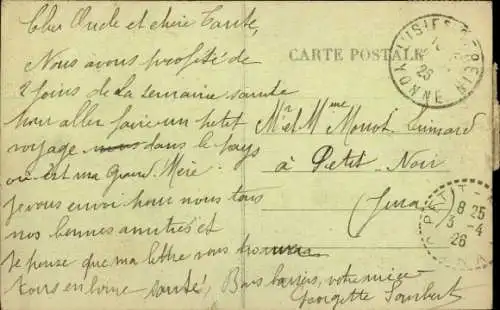 Cher Oncle et chère Tante,
Nous avons profité de
2 jours de la semaine sainte
pour aller faire un petit
voyage dans le pays
où est ma Grand'Mère.
Je vous envoi pour nous tous
nos bonnes amitiés et
Je pense que ma lettre vous trouvera
tous en bonne santé, Bons baisers, votre nièce
Georgette
CARTE POSTALE
Mr et Mme Monot
à Petit-Noir
(Jura)
YONNE
26
PETIT
8 25
3 - 4
26